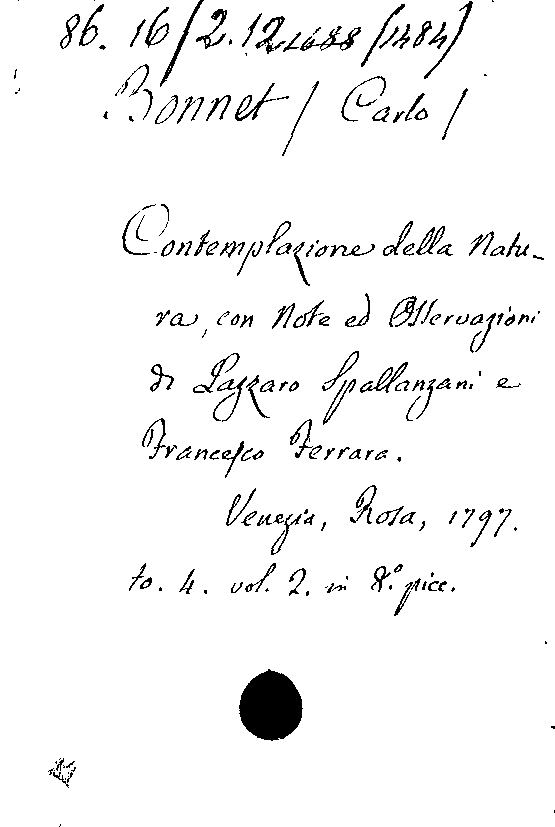 86. 16/2.12 1688 (1484)
Bonnet / Carlo /
Contemplazione della Natu-
ra, con Note ed Osservazioni
di Lazzaro Spallanzani e
Francesco Ferrara.
Venezia, Rosa, 1797.
to. 4. vol. 2. in 8.º picc.